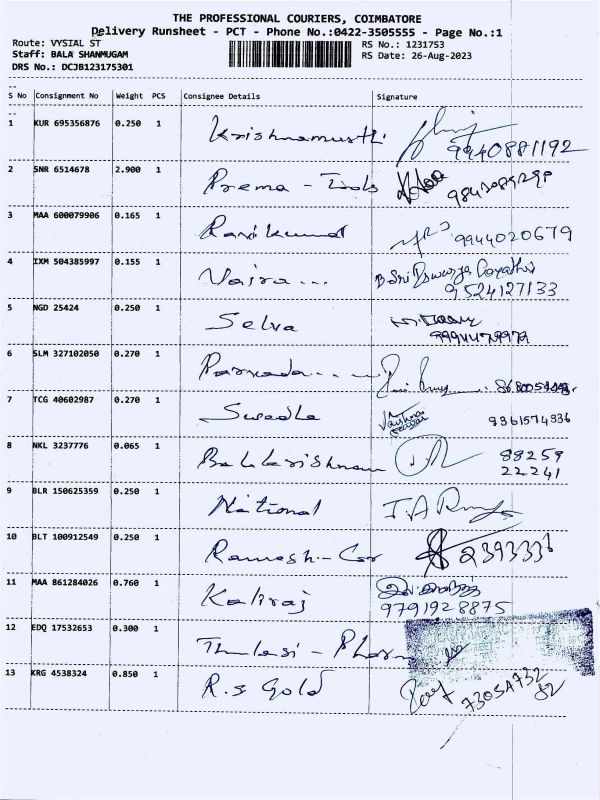 THE PROFESSIONAL COURIERS, COIMBATORE
Delivery Runsheet - PCT - Phone No.:0422-3505555 - Page No.:1
Route: VYSIAL ST
RS No.: 1231753
Staff: BALA SHANMUGAM
RS Date: 26-Aug-2023
DRS No.: DCJB123175301
S No Consignment No Weight PCS Consignee Details Signature
1 KUR 695356876 0.250 1 Krishnamurthi 9940881192
2 SNR 6514678 2.900 1 Prema - Tools
3 MAA 600079906 0.165 1 Ravikumar 9944020679
4 IXM 504385997 0.155 1 Vajra... B. Sri
9524127133
5 NGD 25424 0.250 1 Selva
6 SLM 327102050 0.270 1
7 TCG 40602987 0.270 1 9361574936
8 NKL 3237776 0.065 1 Balakrishnan 88259
22241
9 BLR 150625359 0.250 1 National
10 BLT 100912549 0.250 1 Ramesh - Car 2393336
11 MAA 861284026 0.760 1 Kaliraj
9791928875
12 EDQ 17532653 0.300 1 Thulasi - Pharm
13 KRG 4538324 0.850 1 R.S Gold 73054732
82